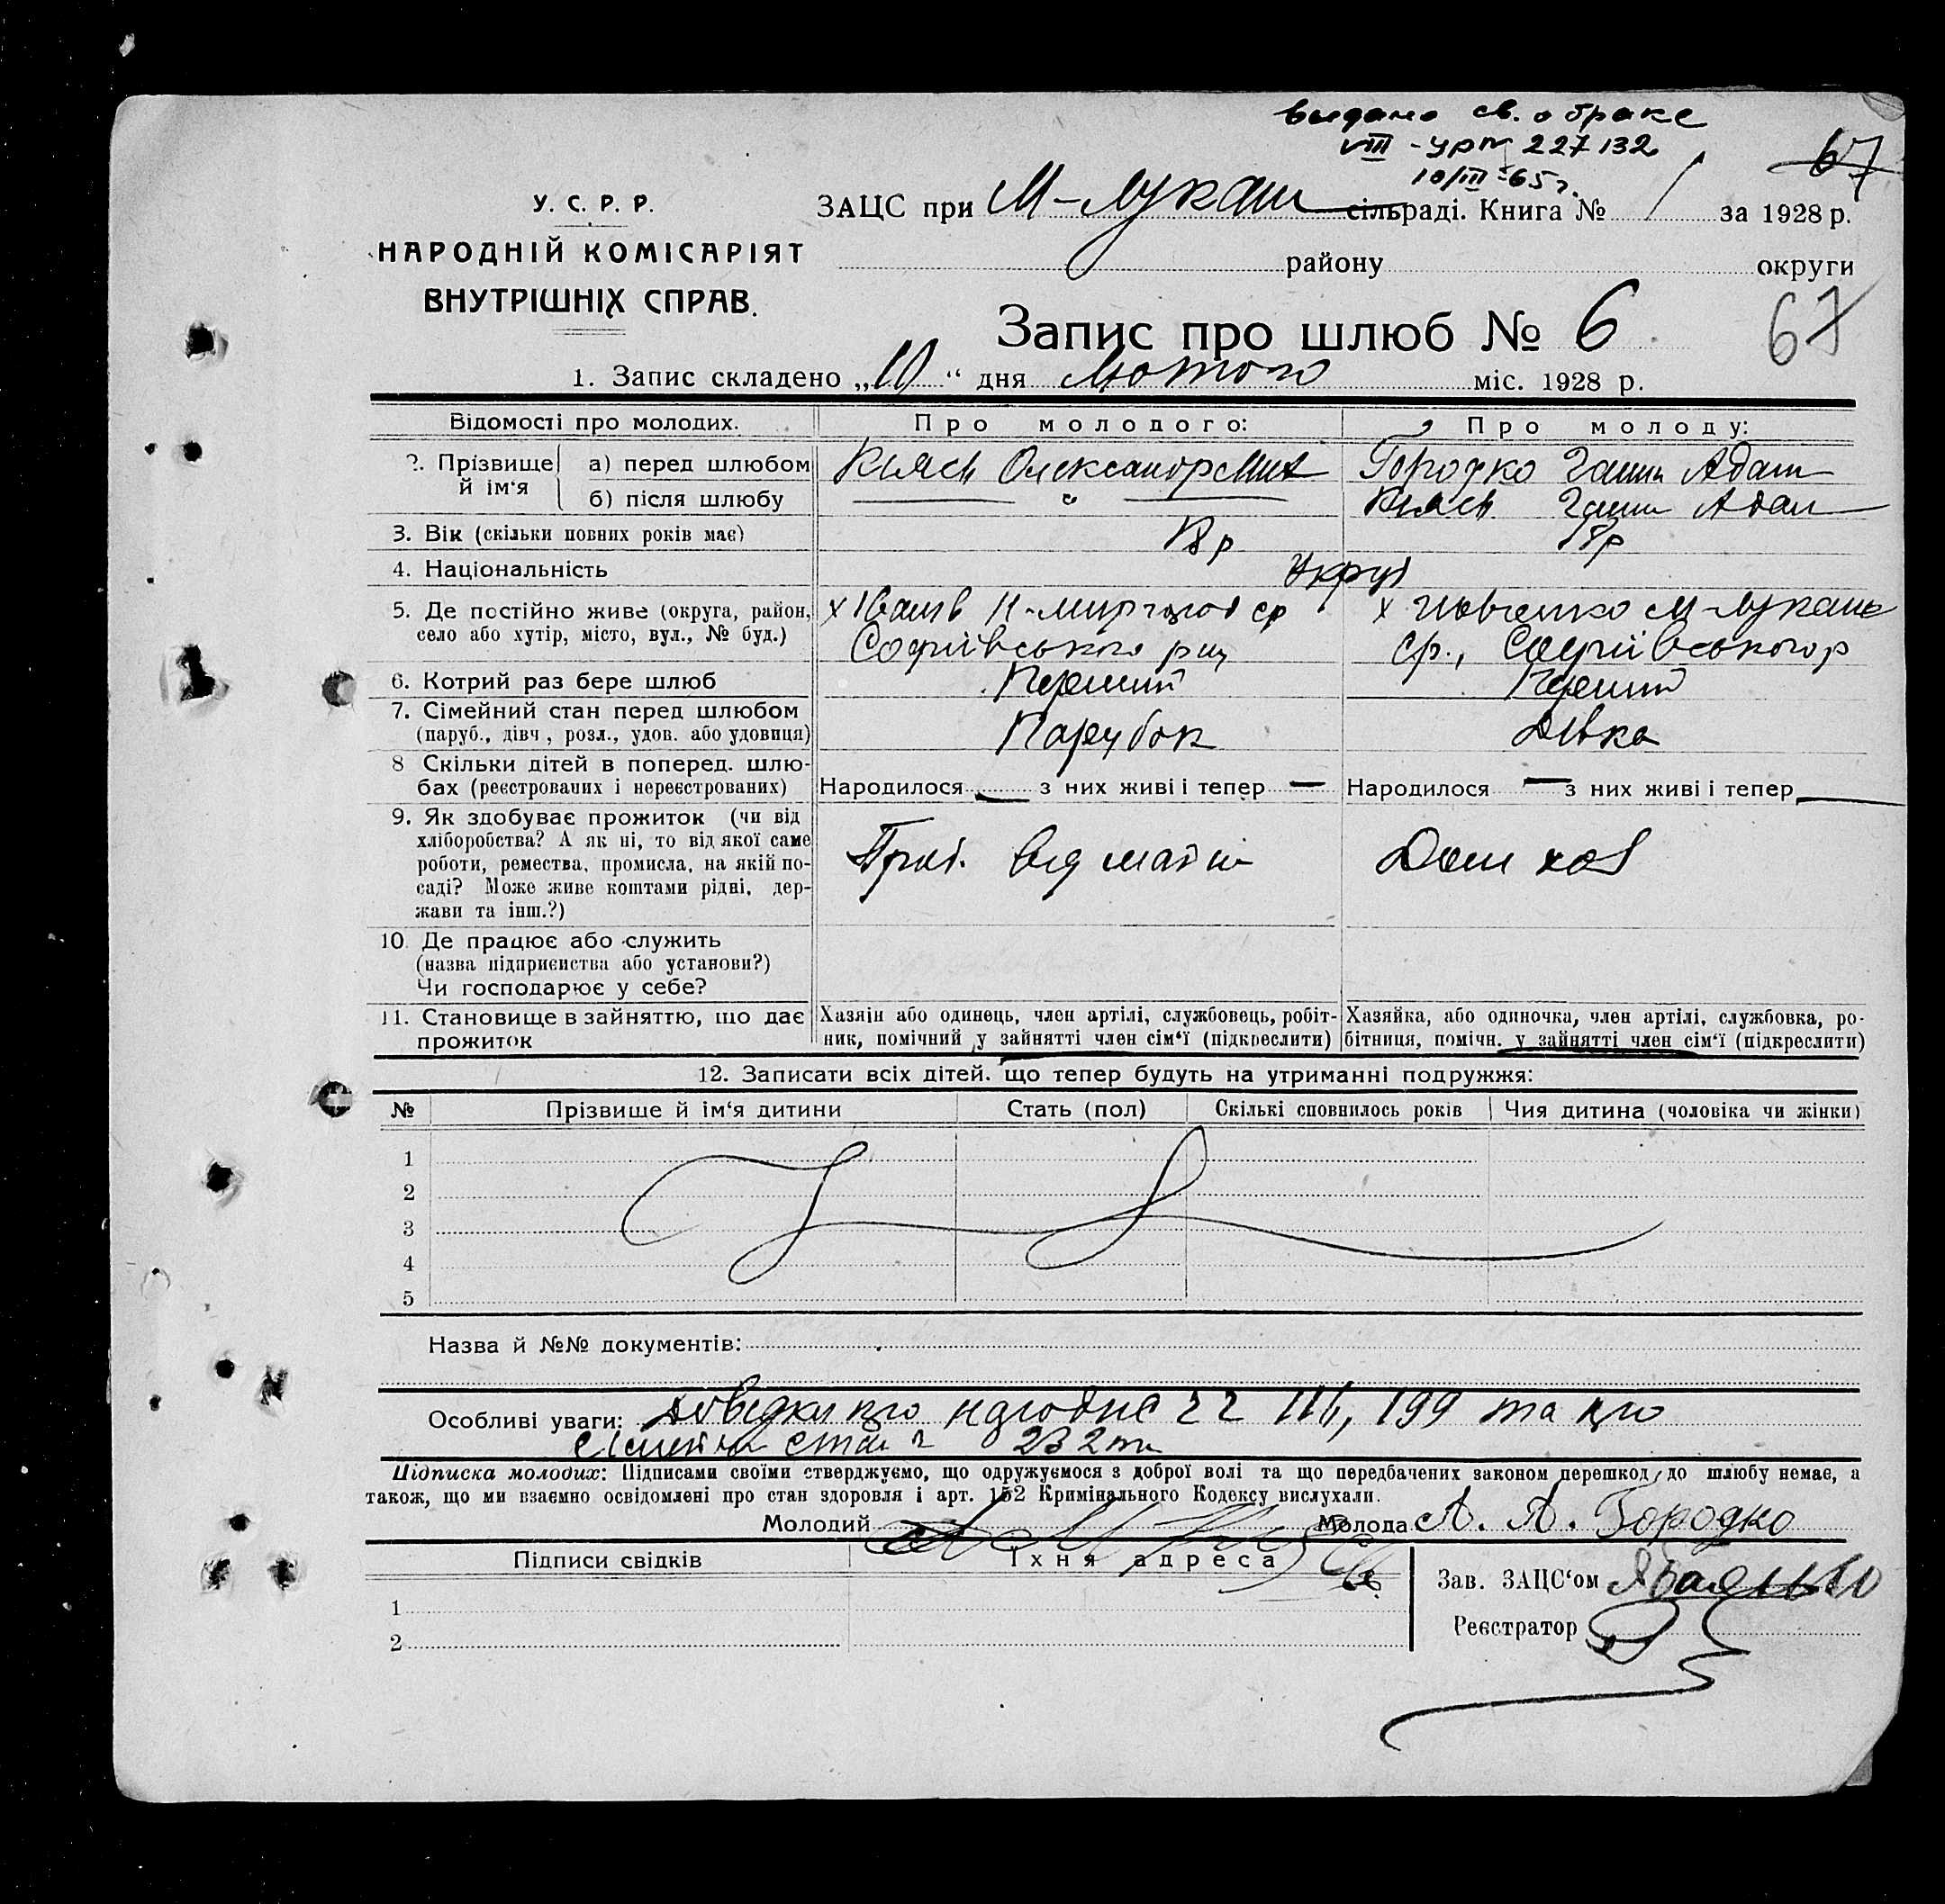 видано св. о браке
VIII-УРЛ 227132
10/III-65 г.
67
У. С. Р. Р.
НАРОДНІЙ КОМІСАРІЯТ
ВНУТРІШНІХ СПРАВ.
ЗАЦС при М-Лукаш сільраді. Книга № 1 за 1928 р.
району округи
67
Запис про шлюб № 6
1. Запис складено „10“ дня Лютого міс. 1928 р.
Відомості про молодих. Про молодого: Про молоду:
2. Прізвище й ім‘я а) перед шлюбом Олександр Мих Городко Ганна Адам
б) після шлюбу " Ганна Адам
3. Вік (скільки повних років має) 18 р 18 р
4. Національність Укр
5. Де постійно живе (округа, район, село або хутір, місто, вул., № буд.) х Іванів ср х М-Лукаш
Софіївського ср., Софіївського р
6. Котрий раз бере шлюб Перший Перший
7. Сімейний стан перед шлюбом Парубок Дівка
(паруб., дівч., розл., удов. або удовиця)
8 Скільки дітей в поперед. шлю-
бах (реєстрованих і нереєстрованих) Народилося — з них живі і тепер — Народилося — з них живі і тепер —
9. Як здобуває прожиток (чи від
хліборобства? А як ні, то від якої саме
роботи, ремества, промисла, на якій по- від Дом
саді? Може живе коштами рідні, дер-
жави та інш.?)
10. Де працює або служить
(назва підприємства або установи?)
Чи господарює у себе?
11. Становище в зайняттю, що дає прожиток
Хазяін або одинець, член артілі, службовець, робіт-
ник, помічний у зайнятті член сім‘ї (підкреслити)
Хазяйка, або одиночка, член артілі, службовка, ро-
бітниця, помічн. у зайнятті член сім‘ї (підкреслити)
12. Записати всіх дітей. що тепер будуть на утриманні подружжя:
№ Прізвише й ім‘я дитини Стать (пол) Скількі сповнилось років Чия дитина (чоловіка чи жінки)
1
2
3
4
5
Назва й №№ документів:
Особливі уваги: Довідки про 199 та про
стан 232
Підписка молодих: Підписами своїми стверджуємо, що одружуємося з доброї волі та що передбачених законом перешкод до шлюбу немає, а
також, що ми взаємно освідомлені про стан здоровля і арт. 152 Кримінального Кодексу вислухали.
Молодий Молода А. А. Городко
Підписи свідків Їхня адреса
Зав. ЗАЦС‘ом
1
Реєстратор
2